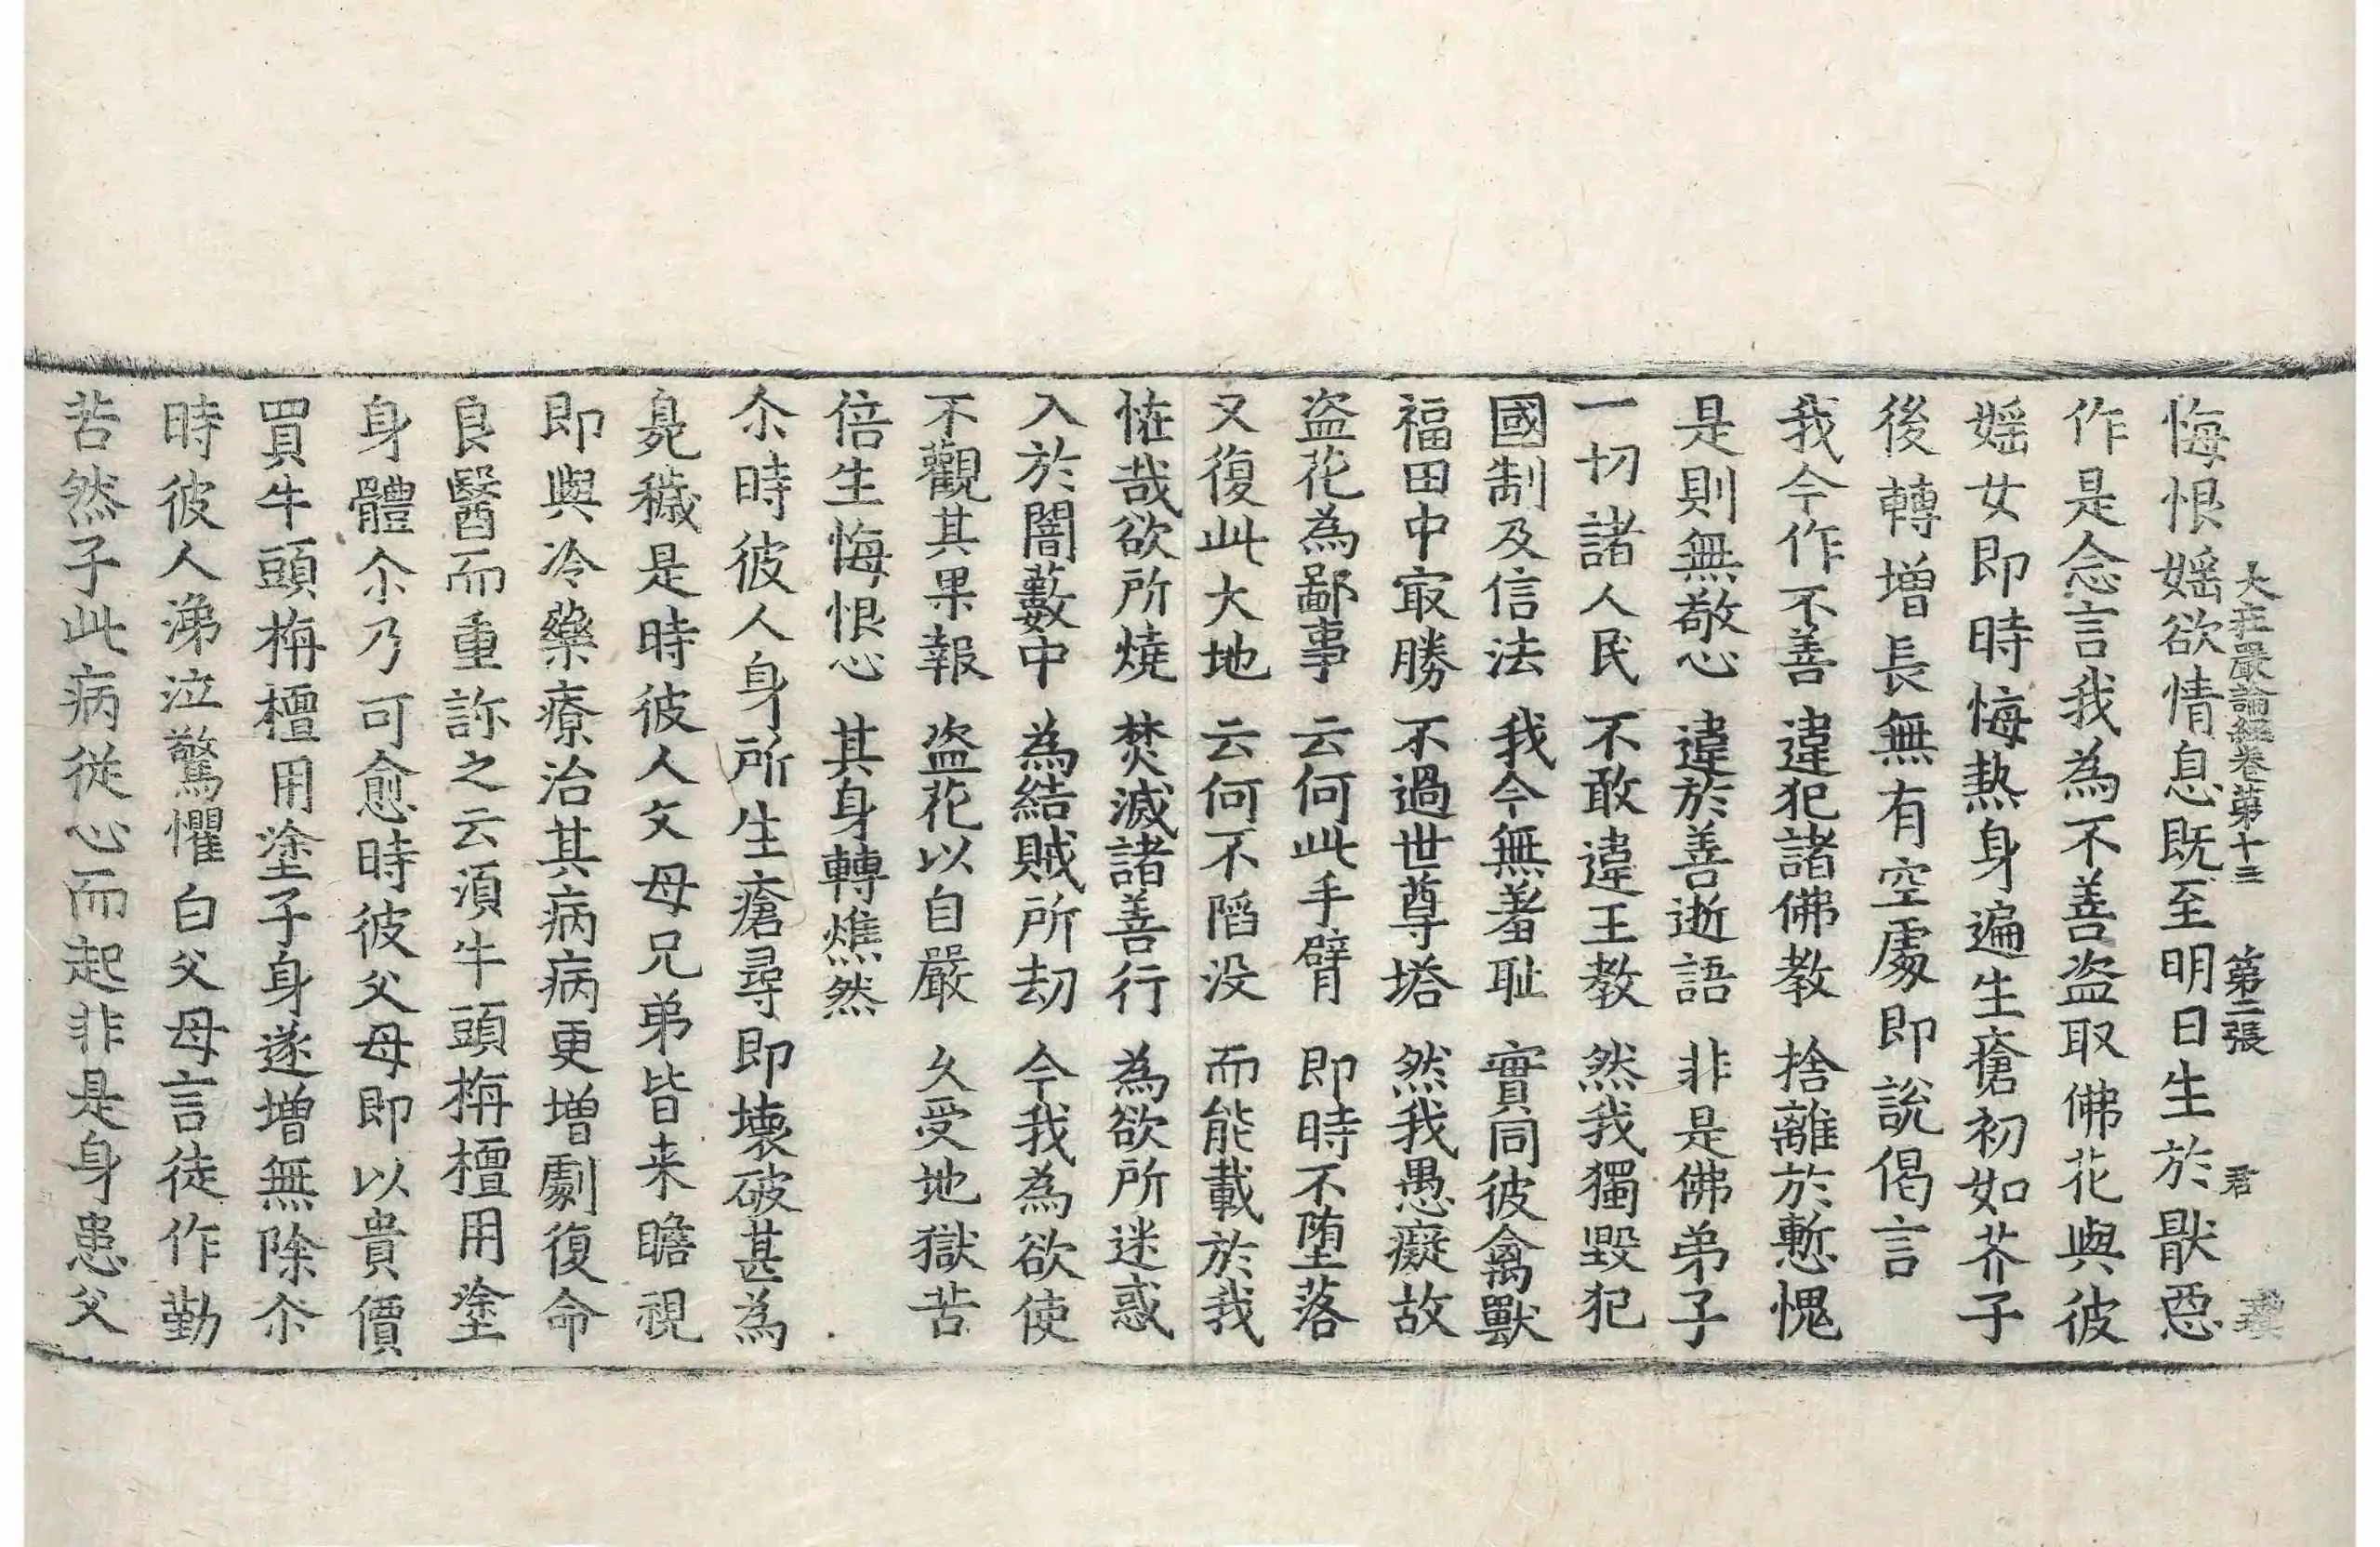 大庄嚴論經卷第十三 第二張 君
悔恨婬欲情息既至明日生於猒惡
作是念言我為不善盗取佛花與彼
婬女即時悔熱身遍生瘡初如芥子
後轉增長無有空處即說偈言
我今作不善 違犯諸佛教 捨離於慙愧
是則無敬心 違於善逝語 非是佛弟子
一切諸人民 不敢違王教 然我獨毀犯
國制及信法 我今無羞耻 實同彼禽獸
福田中㝡勝 不過世尊塔 然我愚癡故
盗花為鄙事 云何此手臂 即時不堕落
又復此大地 云何不陷没 而能載於我
恠哉欲所燒 焚滅諸善行 為欲所迷惑
入於闇藪中 為結賊所劫 今我為欲使
不觀其果報 盗花以自嚴 久受地獄苦
倍生悔恨心 其身轉燋然
尒時彼人身所生瘡尋即壞破甚為
臰穢是時彼人父母兄弟皆来瞻視
即與冷藥療治其病病更增劇復命
良醫而重診之云湏牛頭栴檀用塗
身體尒乃可愈時彼父母即以貴價
買牛頭栴檀用塗子身遂增無除尒
時彼人涕泣驚懼白父母言徒作勤
苦然子此病從心而起非是身患父